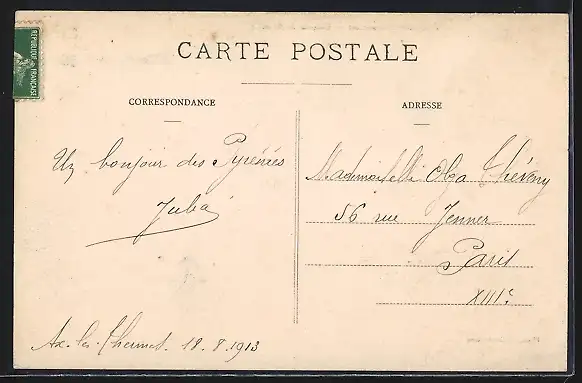 REPUBLIQUE FRANÇAISE
CARTE POSTALE
CORRESPONDANCE
ADRESSE
Un bonjour des Pyrénées
Juba
Mademoiselle Olga Théveny
56 rue Jenner
Paris
XIIIe
Ax-les-Thermes. 18.8.1913